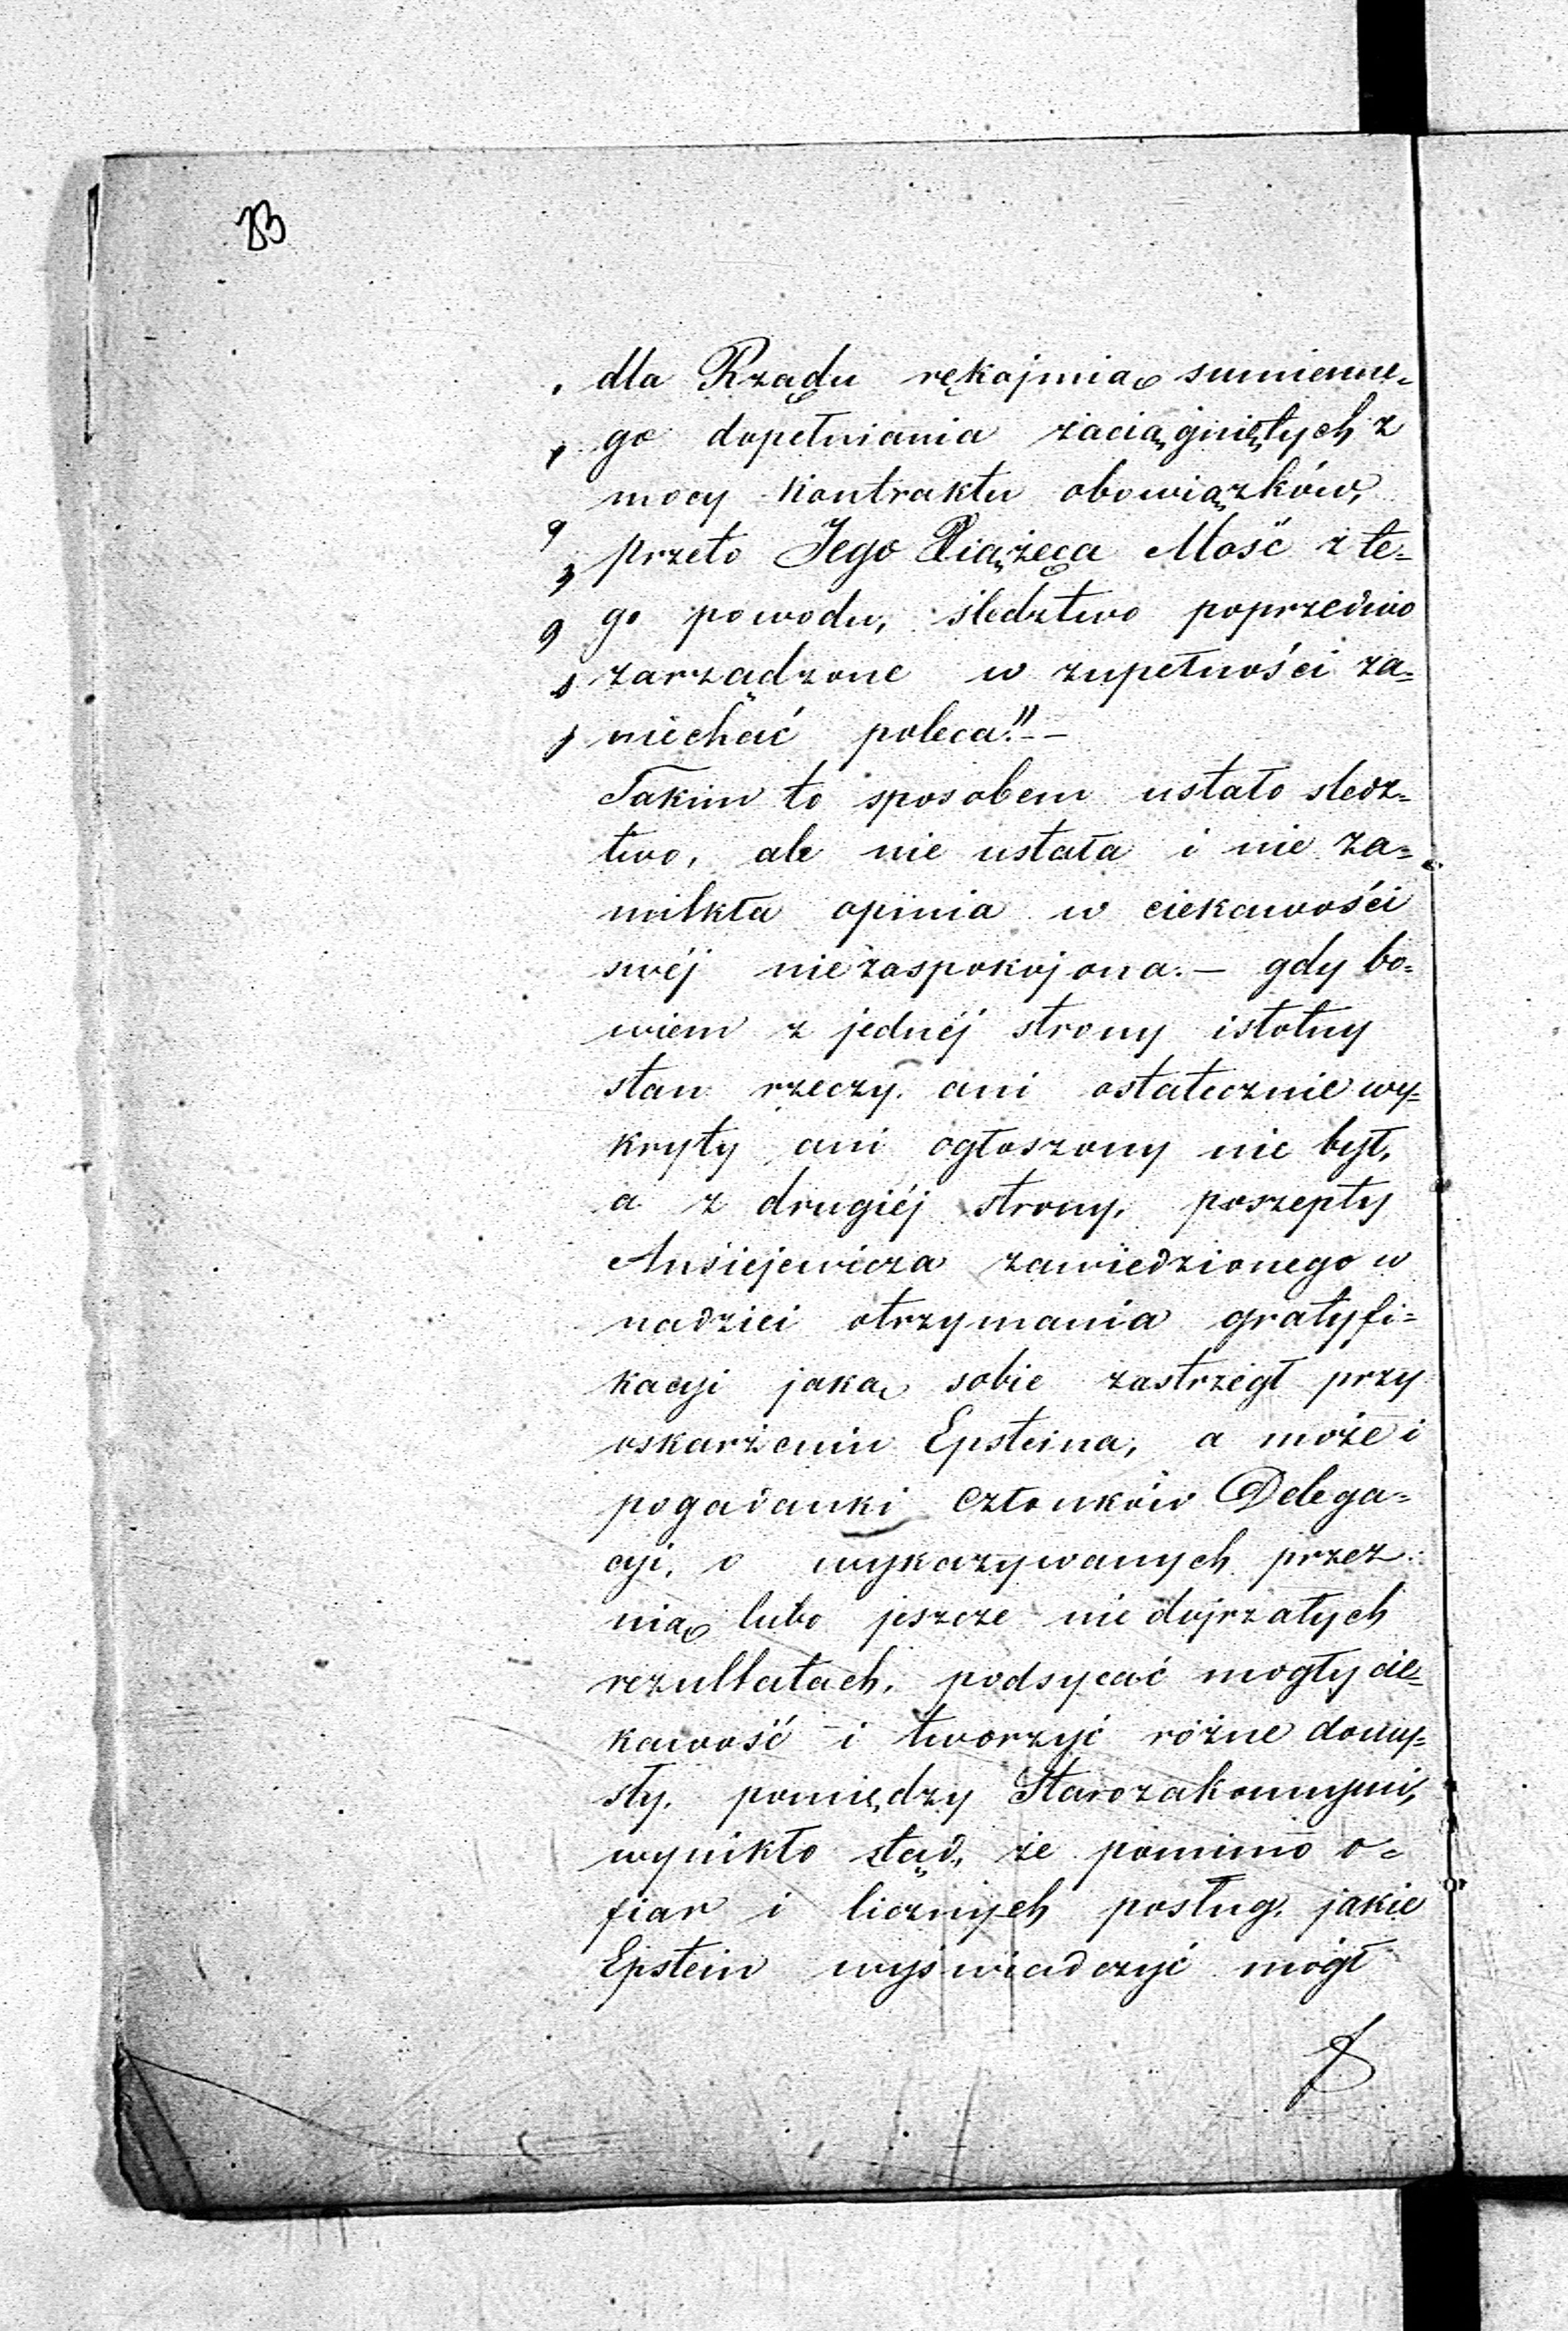 83
dla Rządu rękojmią sumienne=
go dopełniania zaciągniętych z
mocy Kontraktu obowiązków,
przeto Jego Xiążęca Mość z te=
go powodu, śledztwo poprzednio
zarządzone w zupełności za=
niechać poleca."--
Takim to sposobem ustało sledz=
two, ale nie ustała i nie za=
milkła opinia w ciekawości
swéj niezaspokojona.- gdy bo=
wiem z jednéj strony istotny
stan rzeczy, ani ostatecznie wy=
kryty ani ogłoszony nie był,
a z drugiéj strony, poszepty
Ansiejewicza zawiedzionego w
nadziei otrzymania gratyfi=
kacyi jaką sobie zastrzegł przy
oskarżeniu Epsteina, a może i
pogadanki Członków Delega=
cyi, o wykazywanych przez
nią lubo jeszcze niedojrzałych
rezultatach, podsycać mogły cie=
kawość i tworzyć różne domy=
sły, pomiędzy Starozakonnymi,
wynikło stąd, że pomimo o=
fiar i licznych posług, jakie
Epstein wyświadczyć mógł